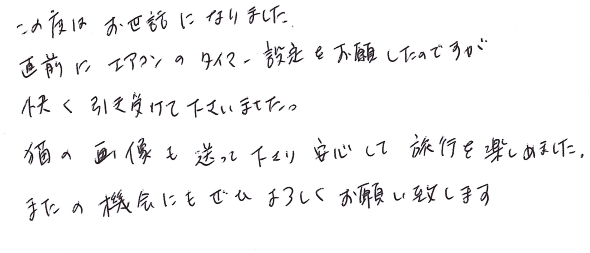 この度は お世話になりました.
直前に エアコンのタイマー設定をお願したのですが
快く引き受けて下さいました。
猫の画像も送って下さり安心して旅行を楽しめました.
またの機会にもぜひよろしくお願い致します